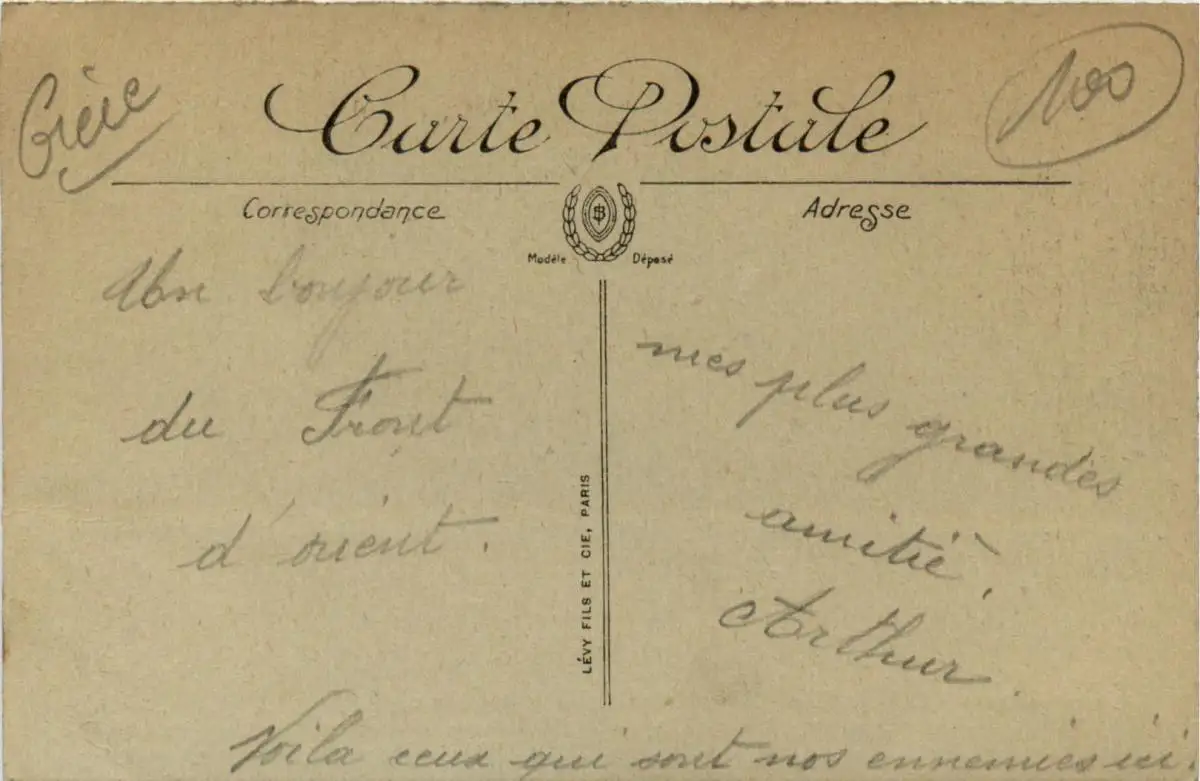 Grèce
Carte Postale
100
Correspondance
Adresse
Modèle Déposé
Un bonjour
du Front
d'orient.
LÉVY FILS ET CIE, PARIS
mes plus grandes
amitié.
Arthur.
Voila ceux qui sont nos ennemies ici.